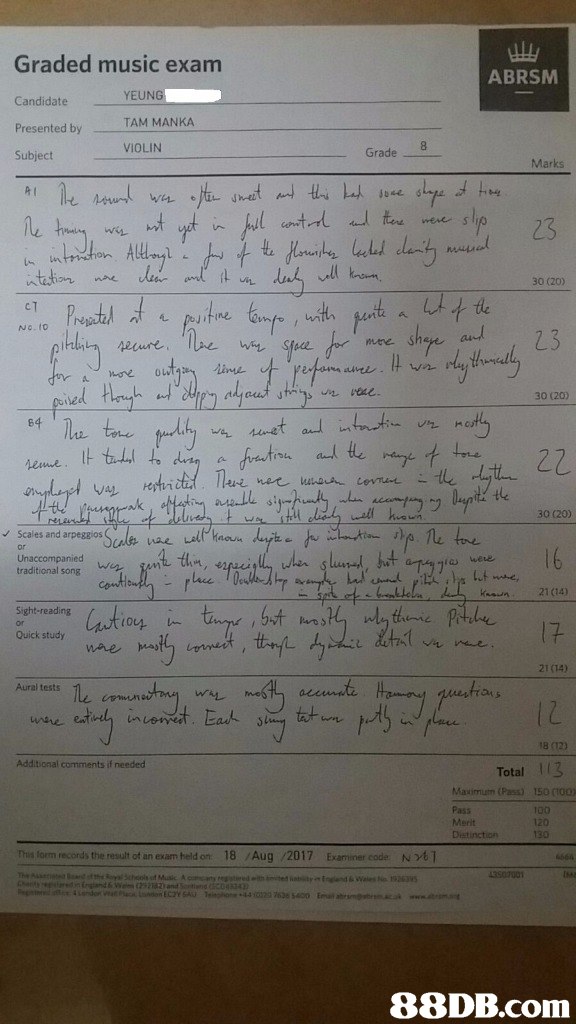 Graded music exam
ABRSM
Candidate YEUNG
Presented by TAM MANKA
Subject VIOLIN Grade 8
Marks
A1 The sound was often sweet and this had some shape at times
The timing was not yet in full control and there were slips 23
in intonation. Although a few of the flourishes lacked clarity musical
intention was clear and it was clearly well known.
30 (20)
C7
No. 10 Presented at a positive tempo, with quite a lot of the
pitching secure. There was space for more shape and 23
for a more outgoing sense of performance. It was rhythmically
poised though and clipping adjacent strings was rare.
30 (20)
B4 The tone quality was sweet and intonation was mostly
secure. It tended to drag a fraction and the range of tone 22
employed was restricted. There were uneven corners in the rhythm
of the affecting ensemble significantly when accompanying Despite the
reserved style of delivery it was still clearly well known.
30 (20)
✓ Scales and arpeggios Scales were well known despite a few intonation slips. The tone
or
Unaccompanied was quite thin, especially when slurred, but arpeggios were 16
traditional song cautiously in place. had pitch slips but were,
in spite of a breakdown, clearly known.
21 (14)
Sight-reading Cautious in tempo, but mostly rhythmic. Pitches
or
Quick study were mostly correct, though dynamic detail was rare. 17
21 (14)
Aural tests The commentary was mostly accurate. Harmony questions
were entirely incorrect. Each sung test was partly in place. 12
18 (12)
Additional comments if needed
Total 113
Maximum (Pass) 150 (100)
Pass 100
Merit 120
Distinction 130
This form records the result of an exam held on: 18 / Aug / 2017 Examiner code: N267
4666
The Associated Board of the Royal Schools of Music. A company registered with limited liability in England & Wales No. 1926395
43507001
88DB.com